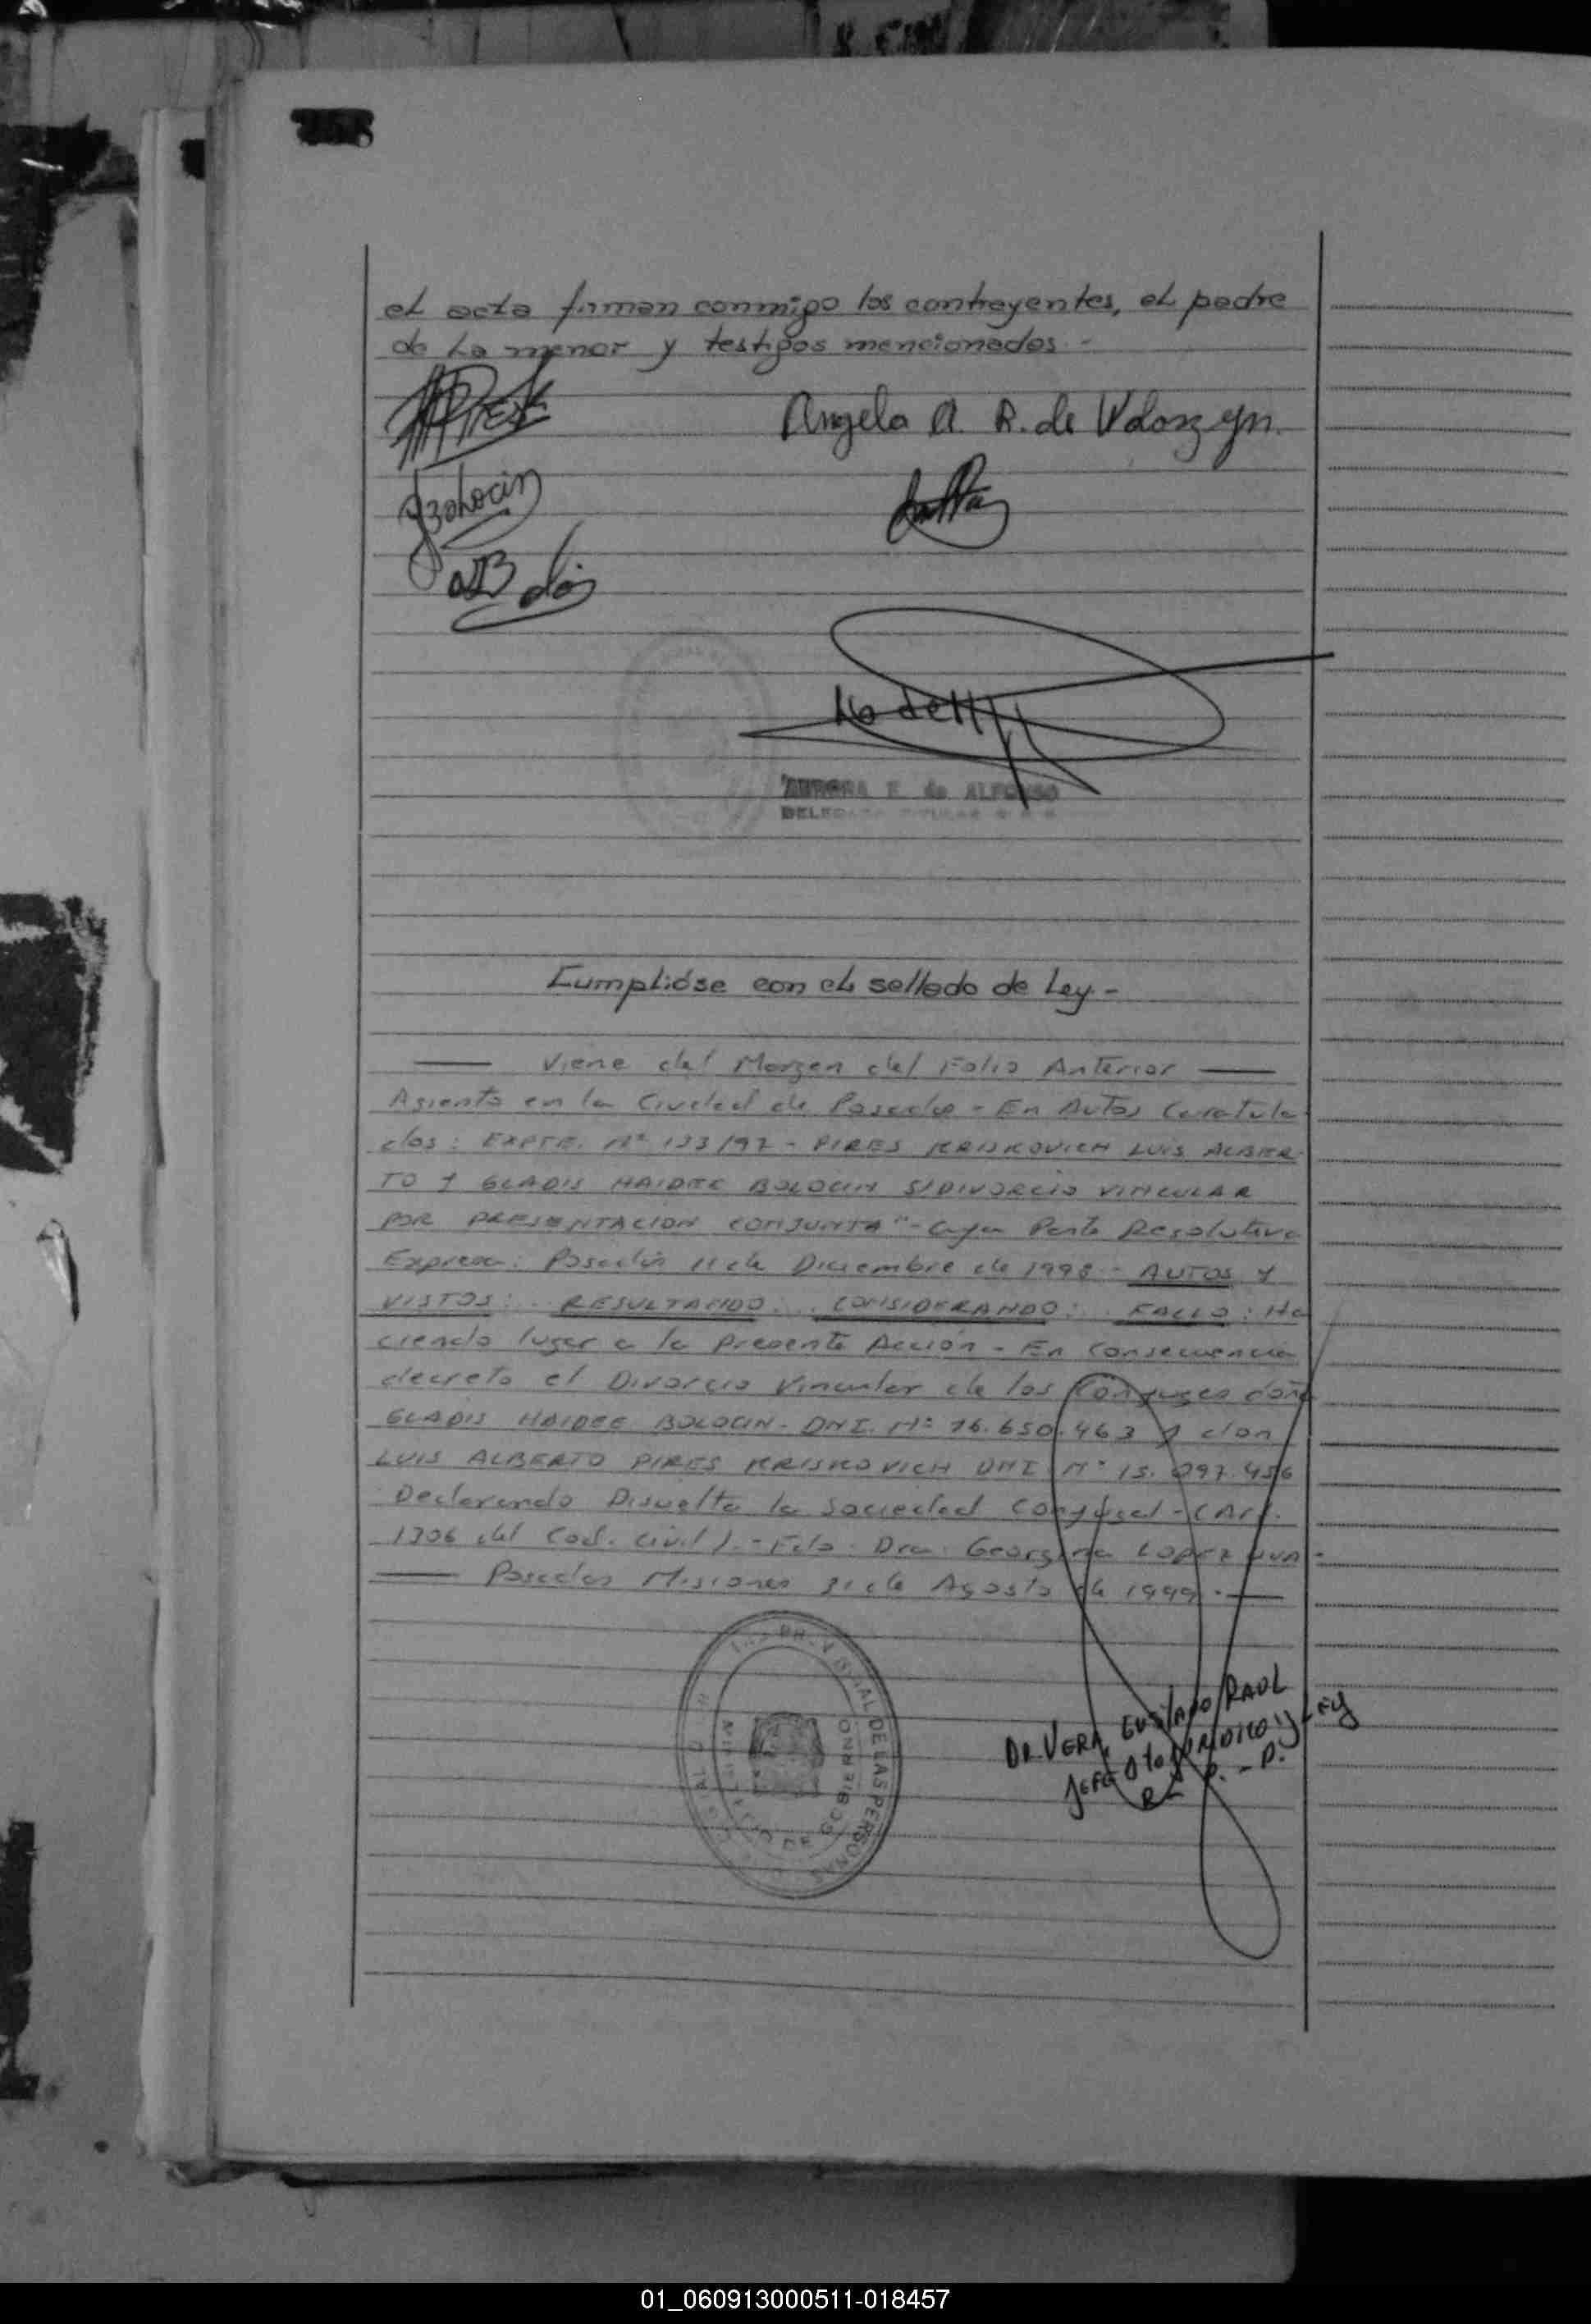 el acta firman conmigo los contrayentes, el padre
de la menor y testigos mencionados.-
Angela A. R. de Woloszyn.
AURORA E. de ALFONSO
Cumplióse con el sellado de Ley.-
Viene del Margen del Folio Anterior
Asiento en la Ciudad de Posadas - En Autos Caratula
dos: EXPTE. Nº 133/97 - PIRES KRISKOVICH LUIS ALBER
TO Y GLADIS HAIDEE BOLOCIN S/DIVORCIO VINCULAR
POR PRESENTACION CONJUNTA"- Cuya Parte Resolutiva
Expresa: Posadas 11 de Diciembre de 1998 - AUTOS Y
VISTOS: . RESULTANDO: . CONSIDERANDO: . FALLO: Ha
ciendo lugar a la Presente Acción - En Consecuencia
decreto el Divorcio Vincular de los Conyuges doña
GLADIS HAIDEE BOLOCIN - DNI. Nº 16.650.463 y don
LUIS ALBERTO PIRES KRISKOVICH DNI Nº 15.097.456
Declarando Disuelta la Sociedad Conyugal - (Art.
1306 del Cod. Civil).- Fdo. Dra. Georgina LOPEZ
Posadas Misiones 31 de Agosto de 1999.-
DR VERA, GUSTAVO RAUL
JEFE Dto JURIDICO y LEG
R. P. - P.
DE LAS PERSONAS
DE GOBIERNO
01_060913000511-018457